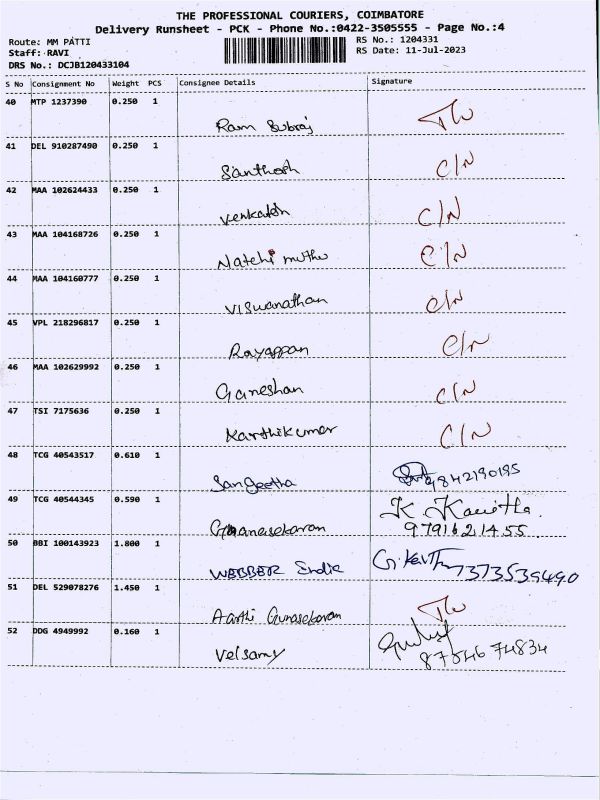 THE PROFESSIONAL COURIERS, COIMBATORE
Delivery Runsheet - PCK - Phone No.:0422-3505555 - Page No.:4
Route: MM PATTI RS No.: 1204331
Staff: RAVI RS Date: 11-Jul-2023
DRS No.: DCJB120433104
S No Consignment No Weight PCS Consignee Details Signature
40 MTP 1237390 0.250 1
Ram Subraj
41 DEL 910287490 0.250 1
Santhosh C/N
42 MAA 102624433 0.250 1
Venkatesh C/N
43 MAA 104168726 0.250 1
Natchi muthu C/N
44 MAA 104160777 0.250 1
Viswanathan C/N
45 VPL 218296817 0.250 1
Rayappan C/N
46 MAA 102629992 0.250 1
Ganeshan C/N
47 TSI 7175636 0.250 1
Karthikumar C/N
48 TCG 40543517 0.610 1
Sangeetha 9842190195
49 TCG 40544345 0.590 1
Gnanasekaran K. Kavitha
9791621455
50 BBI 100143923 1.800 1
WEBBER India 7373539490
51 DEL 529078276 1.450 1
Aarthi Gunasekaran
52 DDG 4949992 0.160 1
Velsamy 8754674834